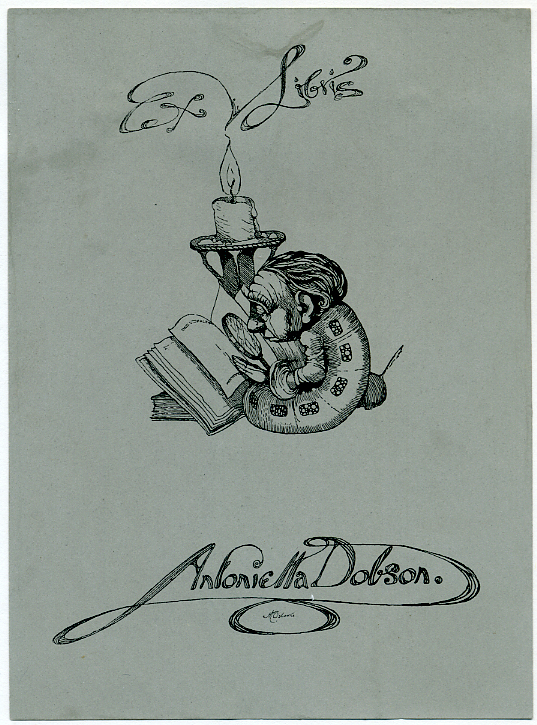 Ex Libris
Antonietta Dobson.